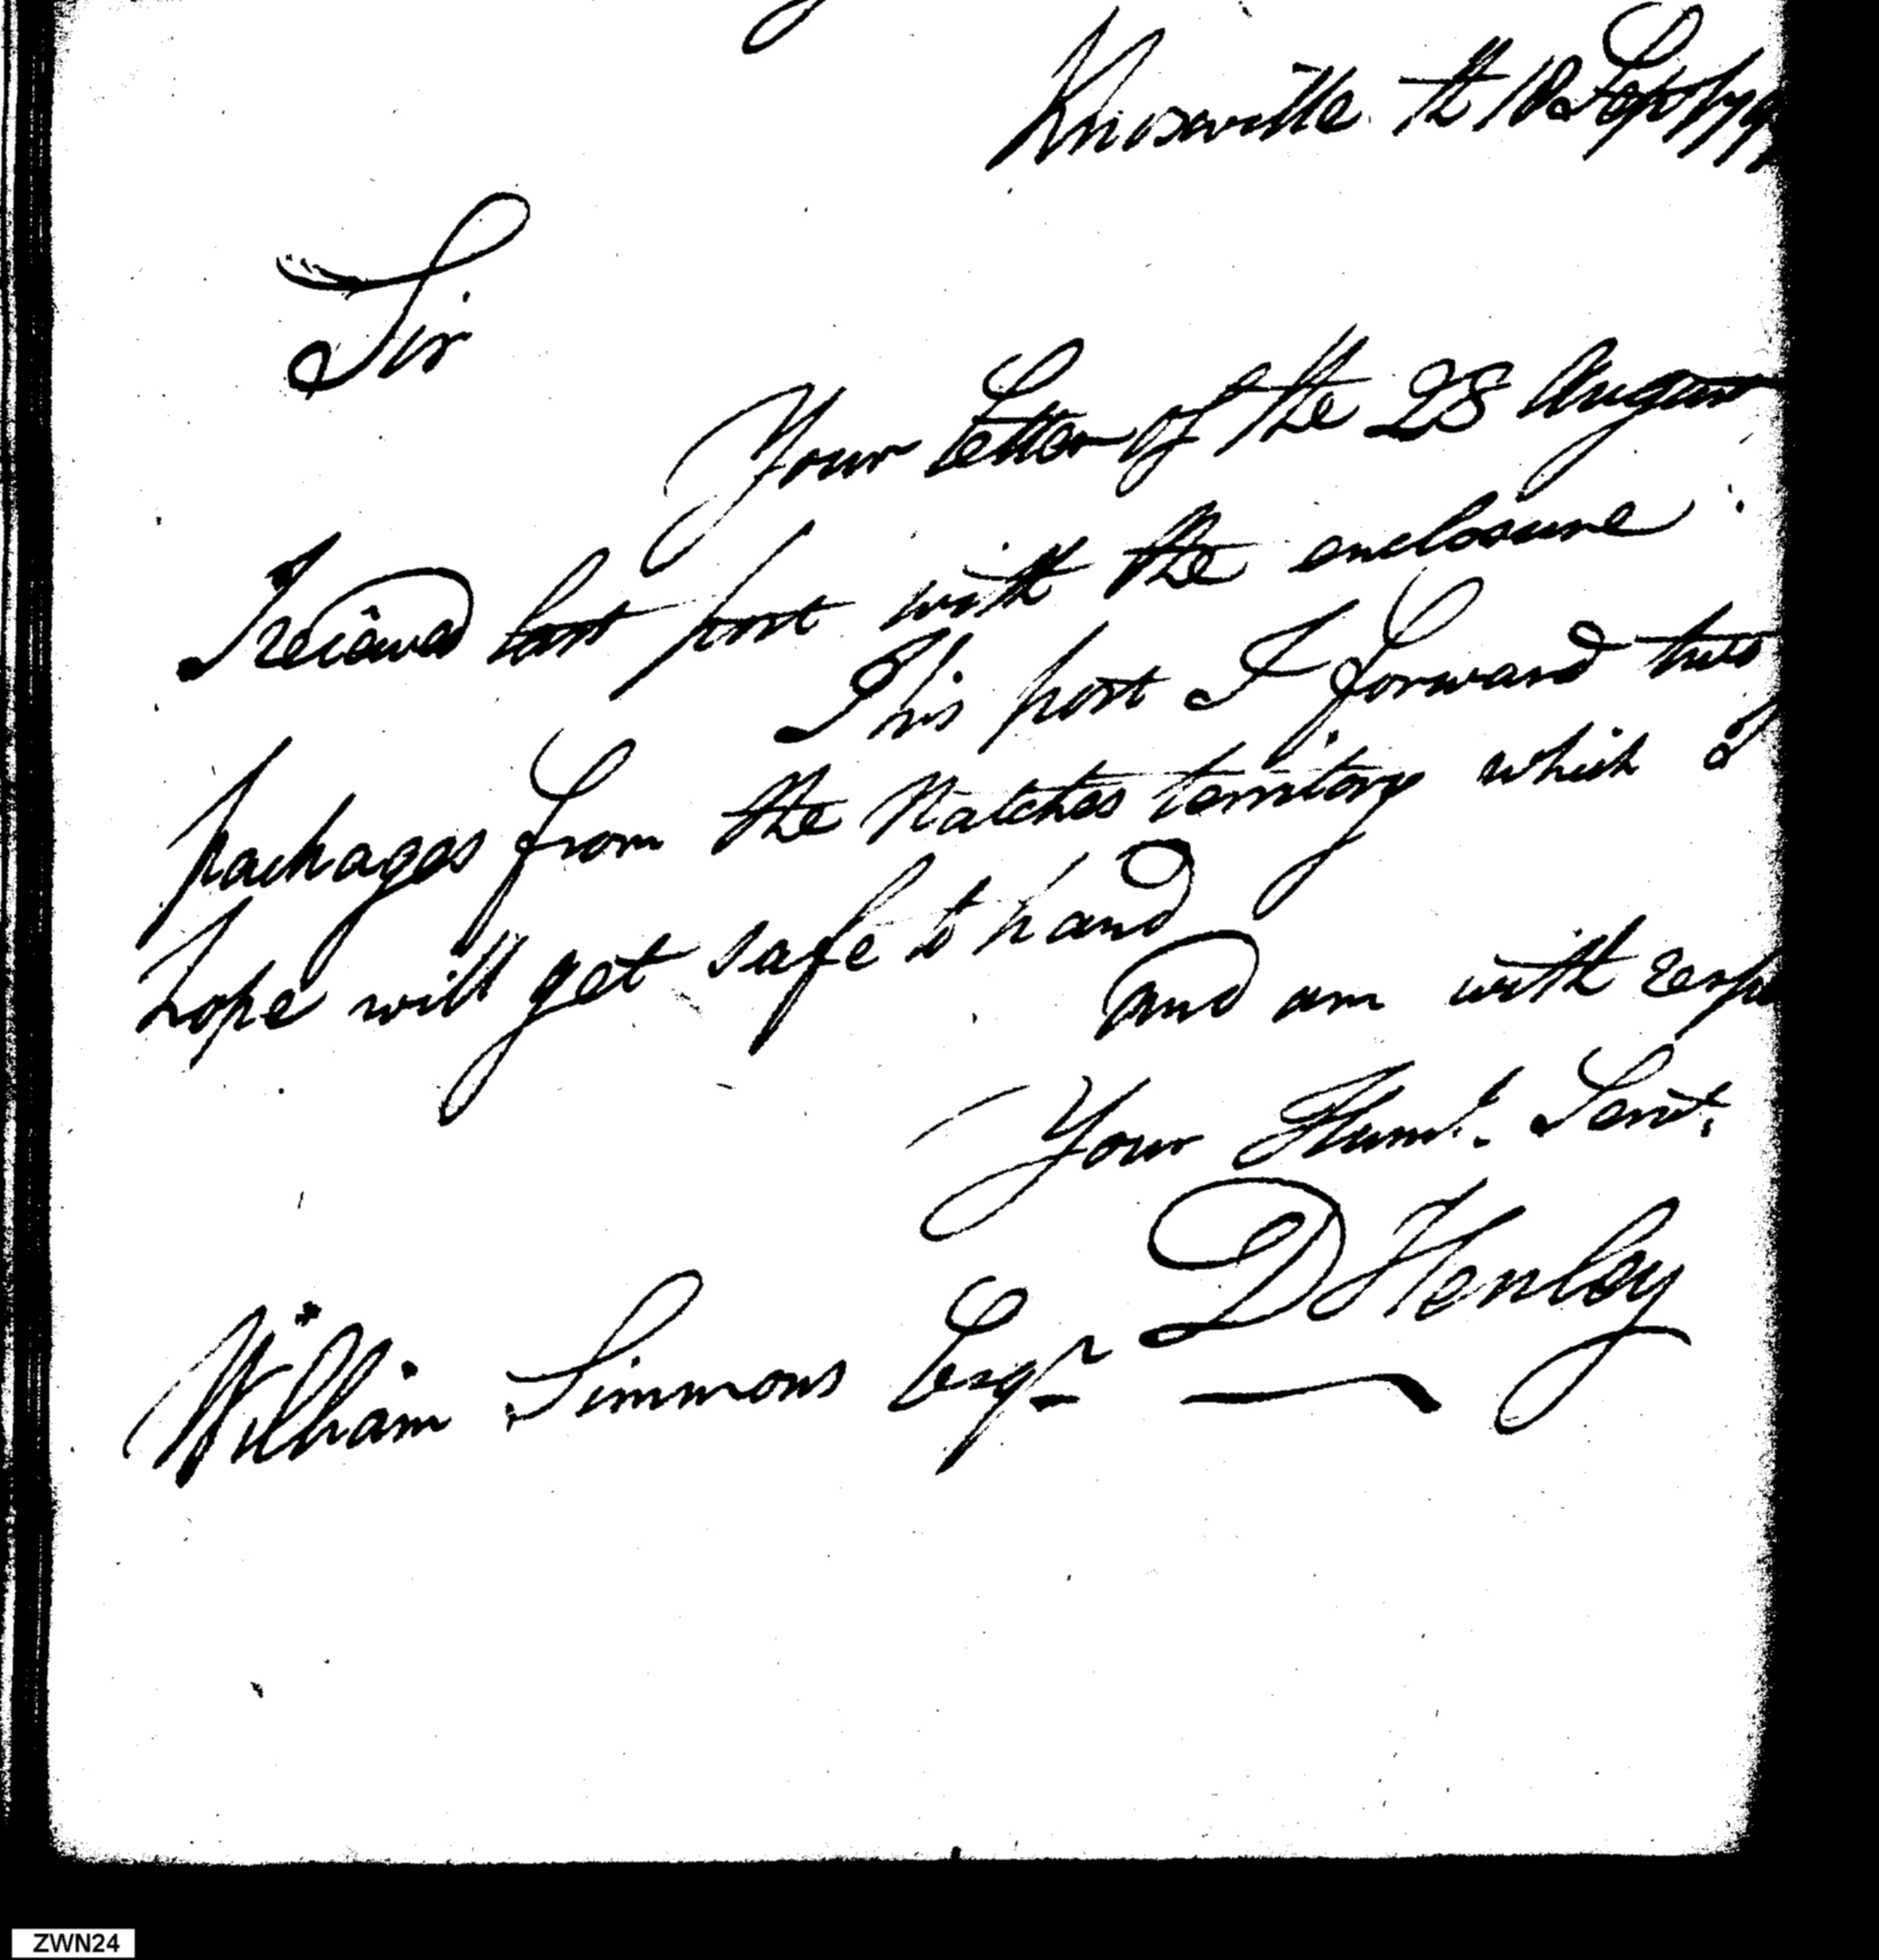 Knoxville th 18 Sept 179
Sir
Your Letter of the 28 August
I reciaved last post with the enclosure
This post I forward two
packages from the Natches territory which I
hope will get safe to hand
and am with respe
Your Hum.l Servt.
D Henley
William Simmons Esqr
ZWN24